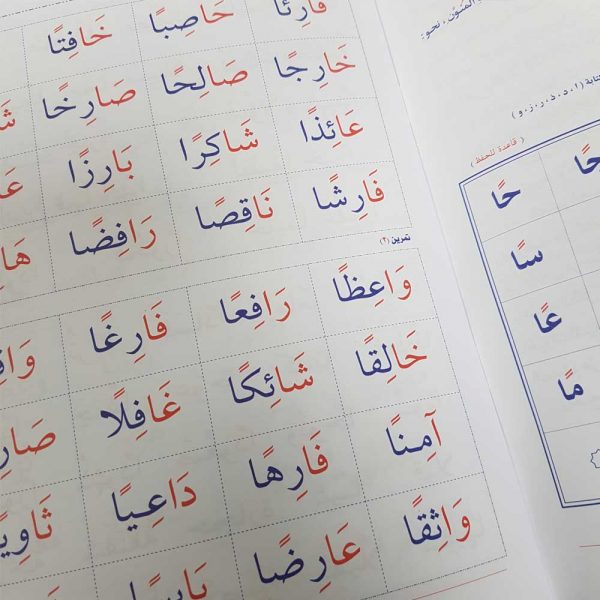 فَارِئًا حَاصِبًا خَافِتًا
خَارِجًا صَالِحًا صَارِخًا
عَائِذًا شَاكِرًا بَارِزًا
فَارِشًا نَاقِصًا رَافِضًا
تمرين (٢)
وَاعِظًا رَافِعًا فَارِغًا
خَالِقًا شَائِكًا غَافِلًا
آمِنًا فَارِهًا دَاعِيًا
وَاثِقًا عَارِضًا
نحو:
(ا، د، ذ، ر، ز، و)
(قاعدة للحفظ)
حًا
سًا
عًا
مًا